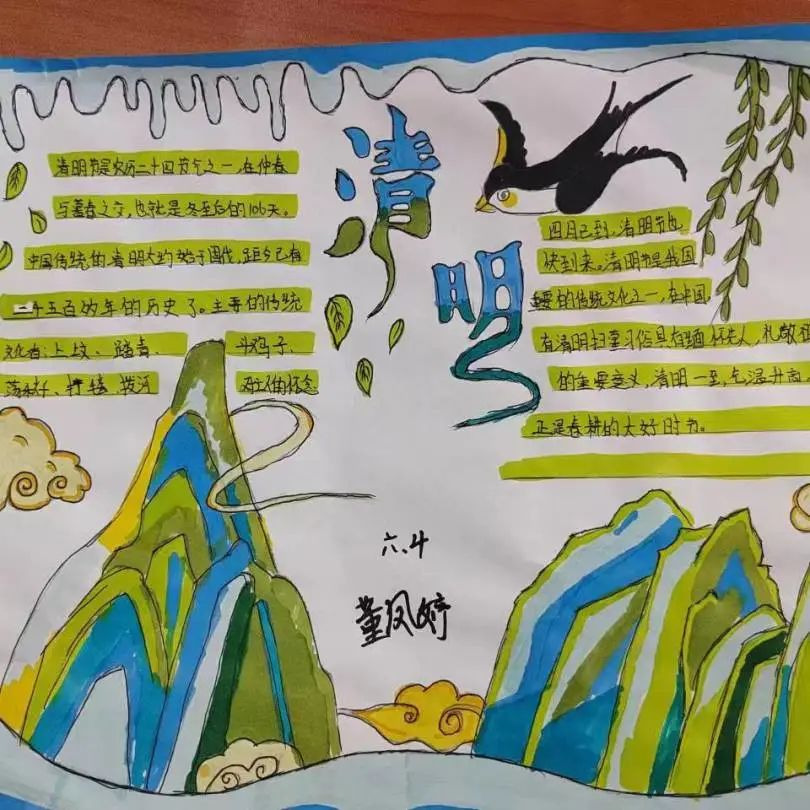 清明
清明节是农历二十四节气之一,在仲春
与暮春之交,也就是冬至后的106天。
中国传统的清明大约始于周代,距今已有
二千五百多年的历史了。主要的传统
文化有:上坟、踏青、斗鸡子、
荡秋千、拔河 的怀念
四月已到,清明节也
快到来。清明节是我国
重要的传统文化之一,在中国
有清明扫墓习俗具有缅怀 人,礼敬
的重要意义,清明一至,气温升高,
正是春耕的大好时节。
六.4
董凤婷